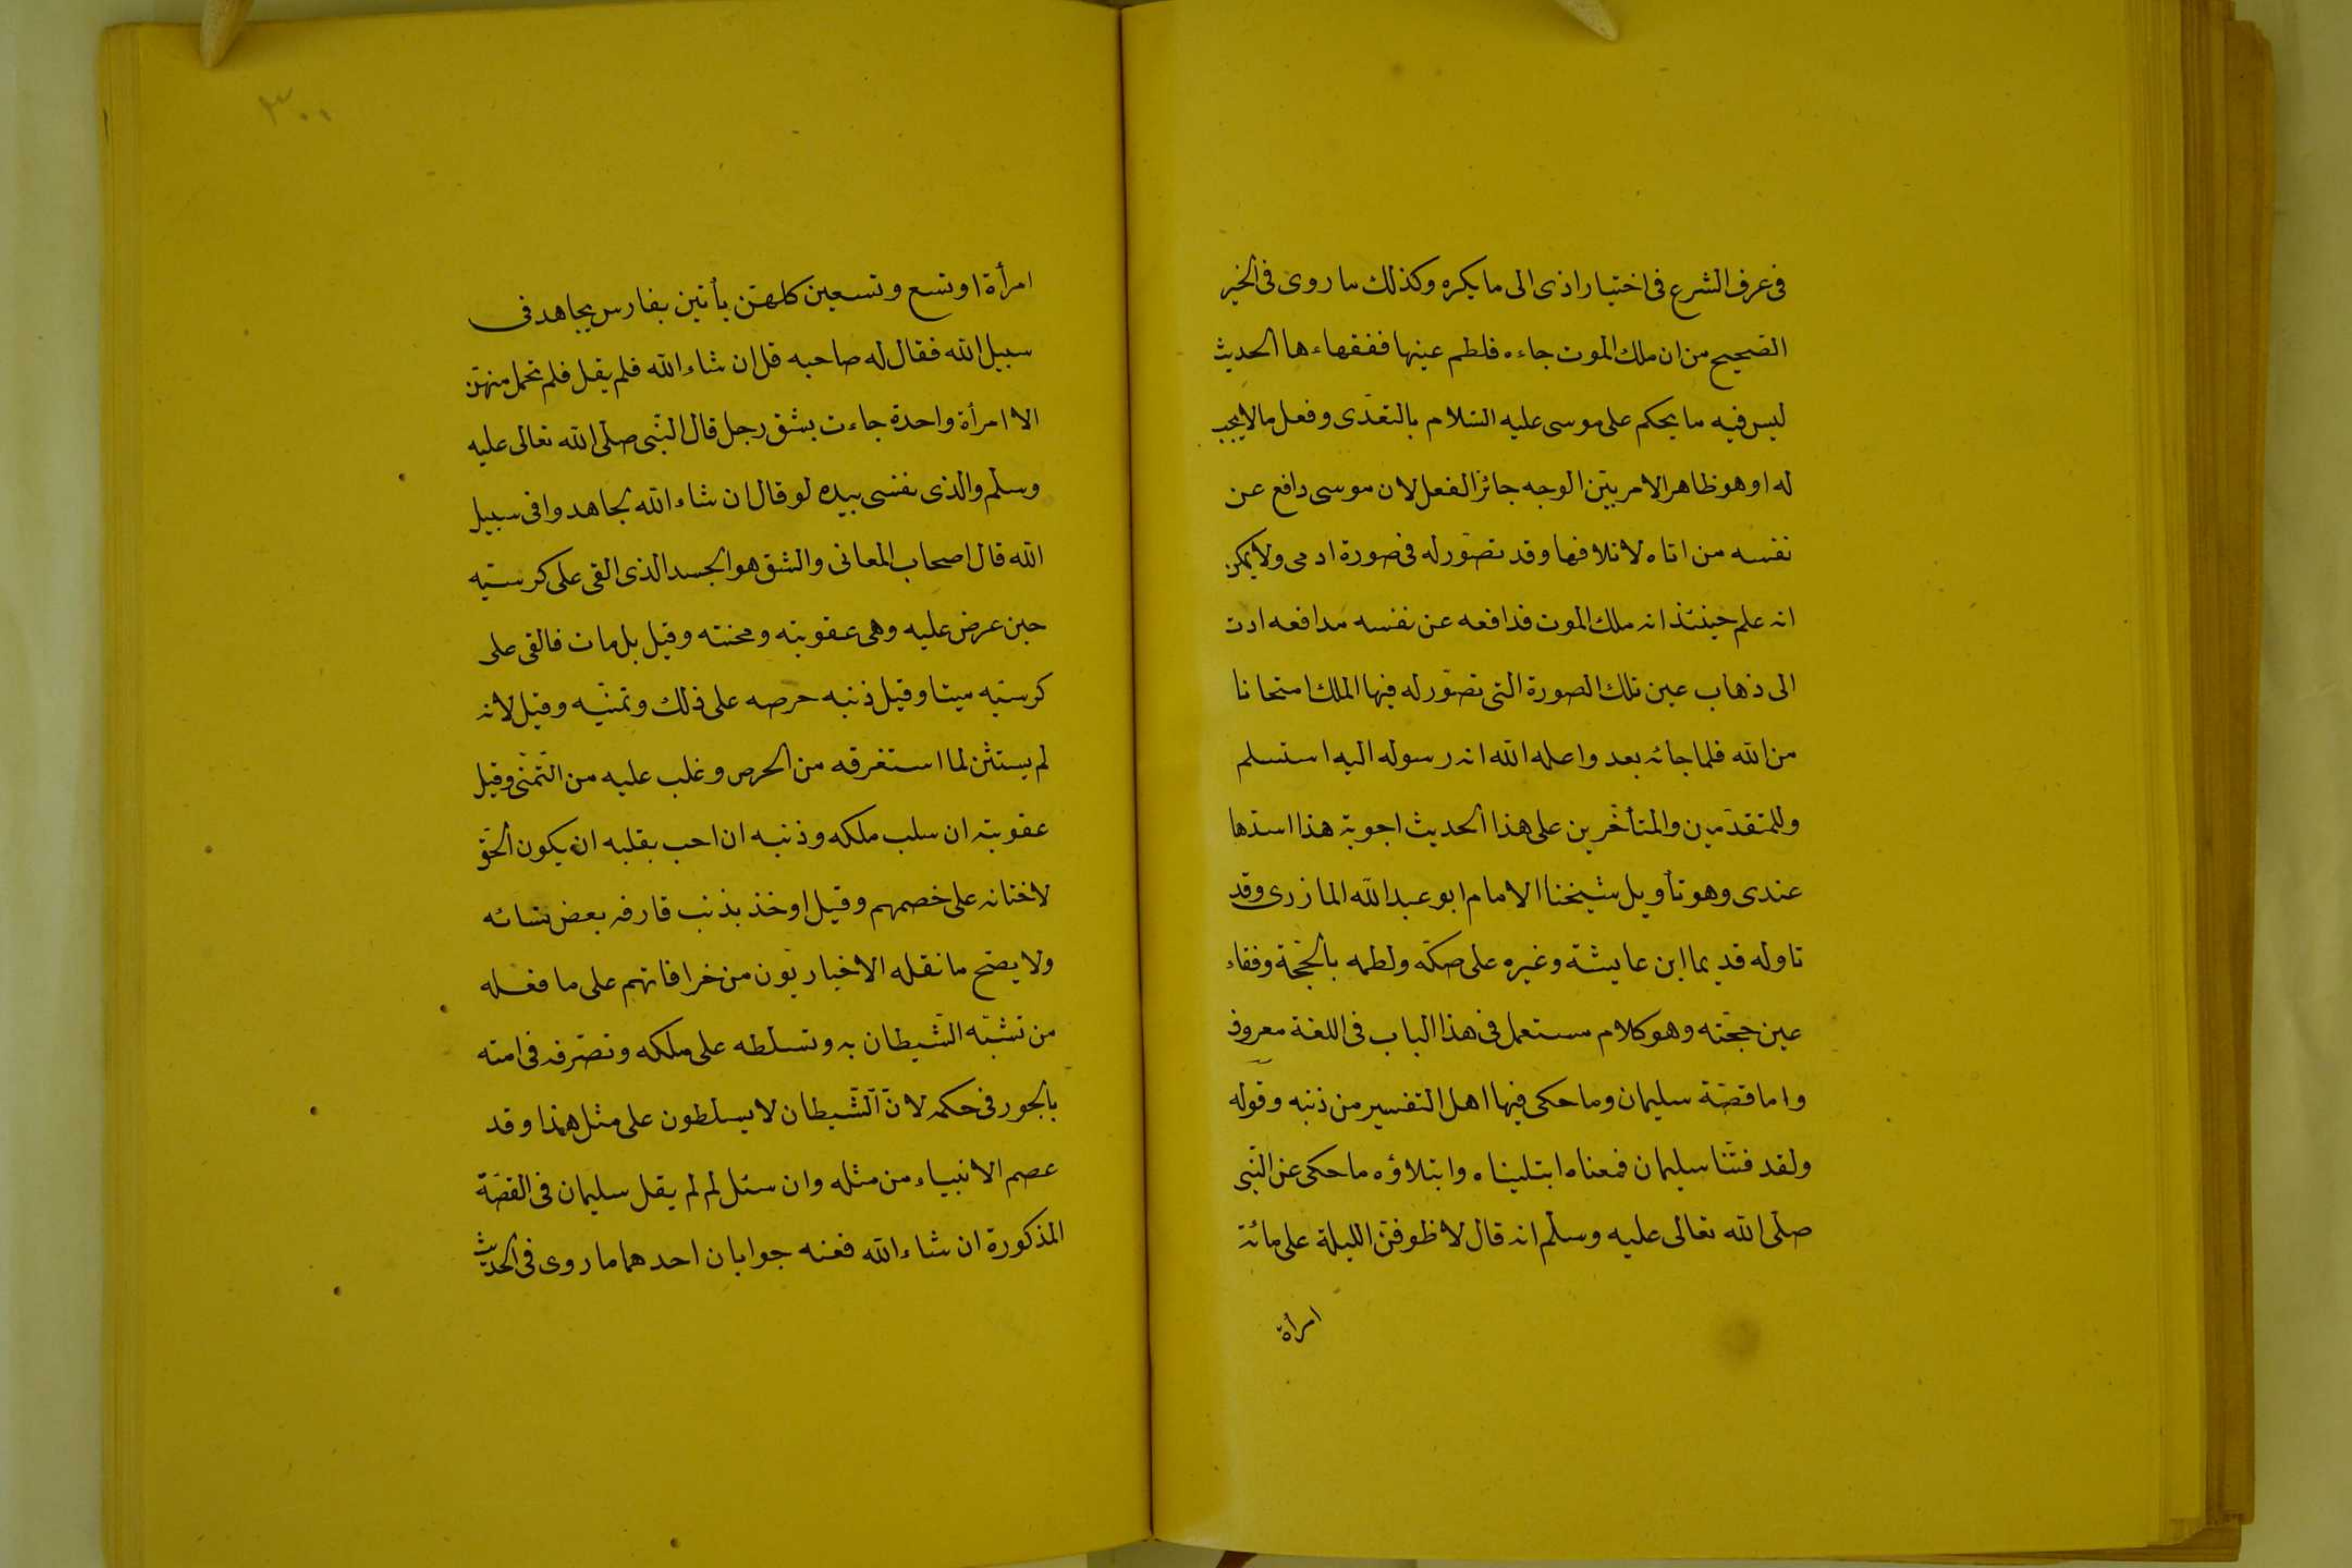 فى عرف الشرع فى اختيار اذى الى ما يكره وكذلك ما روى فى الخبر
الصحيح من ان ملك الموت جاءه فلطم عينها ففقهاءها الحديث
ليس فيه ما يحكم على موسى عليه السّلام بالتعدّى وفعل مالا يجب
له او هو ظاهر الامر بيّن الوجه جائز الفعل لان موسى دافع عن
نفسه من اتاه لاتلافها وقد تصوّر له فى صورة ادمى ولا يمكن
انه علم حينئذ انه ملك الموت فدافعه عن نفسه مدافعه ادت
الى ذهاب عين تلك الصورة التى تصوّر له فيها الملك امتحانا
من الله فلما جائه بعد واعلمه الله انه رسوله اليه استسلم
وللمتقدّمين والمتأخّرين على هذا الحديث اجوبة هذا اسدّها
عندى وهو تأويل شيخنا الامام ابو عبد الله المازرى وقد
تاوله قديما ابن عايشة وغيره على صكّه ولطمه بالحجّة وفقاء
عين حجّته وهو كلام مستعمل فى هذا الباب فى اللغة معروف
واما قصّة سليمان وما حكى فيها اهل التفسير من ذنبه وقوله
ولقد فتنّا سليمان فمعناه ابتليناه وابتلاؤه ما حكى عن النّبى
صلّى الله تعالى عليه وسلّم انه قال لاظوفنّ الليلة على مائة
امرأة
٣٠٠
امرأة او تسع وتسعين كلهنّ يأتين بفارس يجاهد فى
سبيل الله فقال له صاحبه قل ان شاء الله فلم يقل فلم تحمل منهنّ
الا امرأة واحدة جاءت بشق رجل قال النّبى صلّى الله تعالى عليه
وسلّم والذى نفسى بيده لو قال ان شاء الله لجاهدوا فى سبيل
الله قال اصحاب المعانى والشق هو الجسد الذى القى على كرسيّه
حين عرض عليه وهى عقوبته ومحنته وقيل بل مات فالقى على
كرسيّه ميتا وقيل ذنبه حرصه على ذلك وتمنّيه وقيل لانه
لم يستثن لما استغرقه من الحرص وغلب عليه من التمنّى وقيل
عقوبته ان سلب ملكه وذنبه ان احب بقلبه ان يكون الحقّ
لاختانه على خصمهم وقيل اوخذ بذنب قارفه بعض نسائه
ولا يصحّ ما نقله الاخباريّون من خرافاتهم على ما فعله
من تشبّه الشّيطان به وتسلطه على ملكه وتصرّفه فى امته
بالجور فى حكمه لانّ الشّيطان لا يسلطون على مثل هذا وقد
عصم الانبياء من مثله وان سئل لم لم يقل سليمان فى القصّة
المذكورة ان شاء الله فعنه جوابان احدهما ما روى فى الحديث